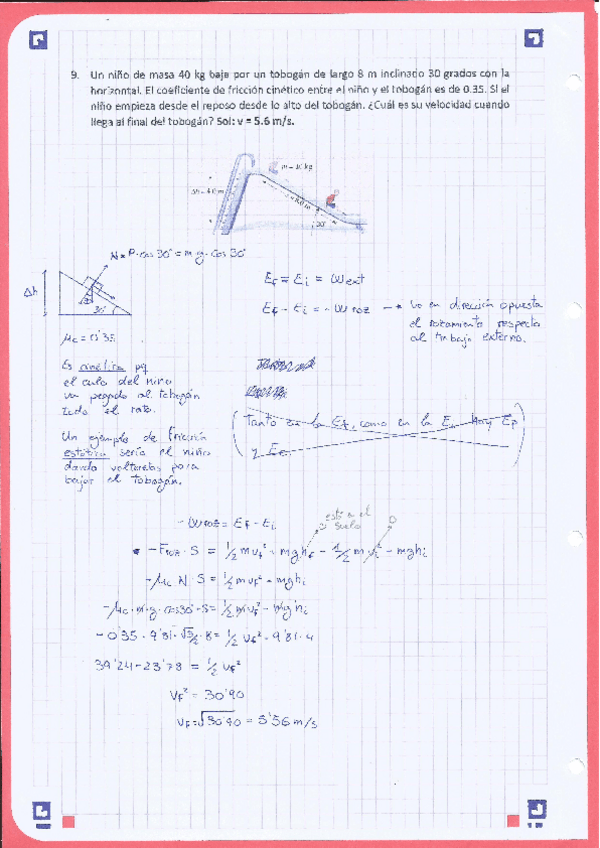 9. Un niño de masa 40 kg baja por un tobogán de largo 8 m inclinado 30 grados con la
horizontal. El coeficiente de fricción cinético entre el niño y el tobogán es de 0.35. Si el
niño empieza desde el reposo desde lo alto del tobogán. ¿Cuál es su velocidad cuando
llega al final del tobogán? Sol: v = 5.6 m/s.
m = 40 kg
Δh = 4.0 m
8.0 m
30°
N = P·cos 30° = m·g·cos 30°
Δh
30°
μc = 0'35
Ef = Ei = Wext
Ef - Ei = - Wroz → va en dirección opuesta
el rozamiento respecto
al trabajo externo.
Es cinética pq
el culo del niño
va pegado al tobogán
todo el rato.
Un ejemplo de fricción
estática sería el niño
dando volteretas para
bajar el tobogán.
(Tanto en la Ef, como en la Ei hay Ep
y Ec)
- Wroz = Ef - Ei
está en el
suelo
0
0
- Froz · S = 1/2 mvf² + mghf - 1/2 m vi² - mghi
- μc N · S = 1/2 m vf² - mghi
- μc · m · g · cos30 · S = 1/2 m vf² - m g hi
- 0'35 · 9'81 · √3/2 · 8 = 1/2 vf² - 9'81 · 4
39'24 - 23'78 = 1/2 vf²
vf² = 30'90
vf = √30'90 = 5'56 m/s